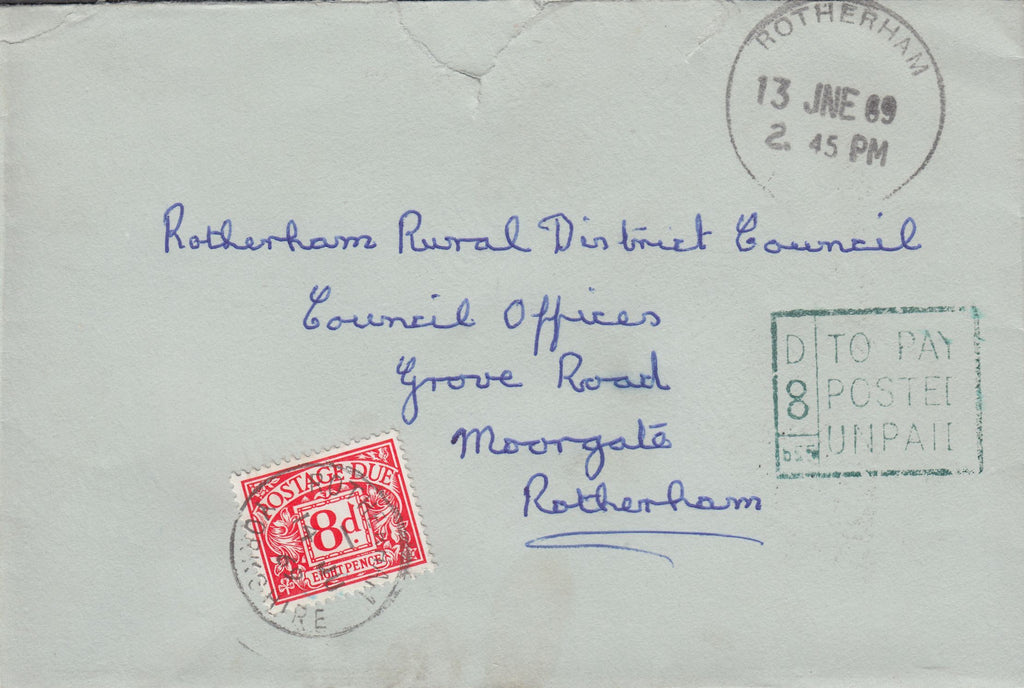 ROTHERHAM
13 JNE 69
2. 45 PM
Rotherham Rural District Council
Council Offices
Grove Road
Moorgate
Rotherham
D
8
TO PAY
POSTED
UNPAID
POSTAGE DUE
8d.
EIGHT PENCE
ROTHERHAM
YORKSHIRE